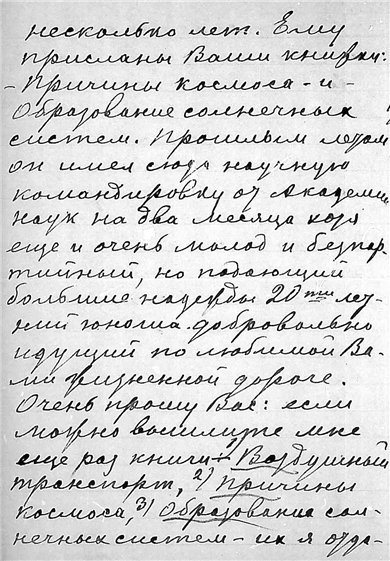 несколько лет. Ему
присланы Ваши книжки:
- Причины космоса - и -
Образование солнечных
систем. Прошлым летом
он имел сюда научную
командировку от Академии
наук на два месяца хотя
еще и очень молод и безпар-
тийный, но подающий
большие надежды 20ти лет-
ний юноша - добровольно
идущий по любимой Ва-
ми жизненной дороге.
Очень прошу Вас: если
можно вышлите мне
еще раз книги 1) Воздушный
транспорт, 2) Причины
космоса, 3) Образование сол-
нечных систем - их я отда-